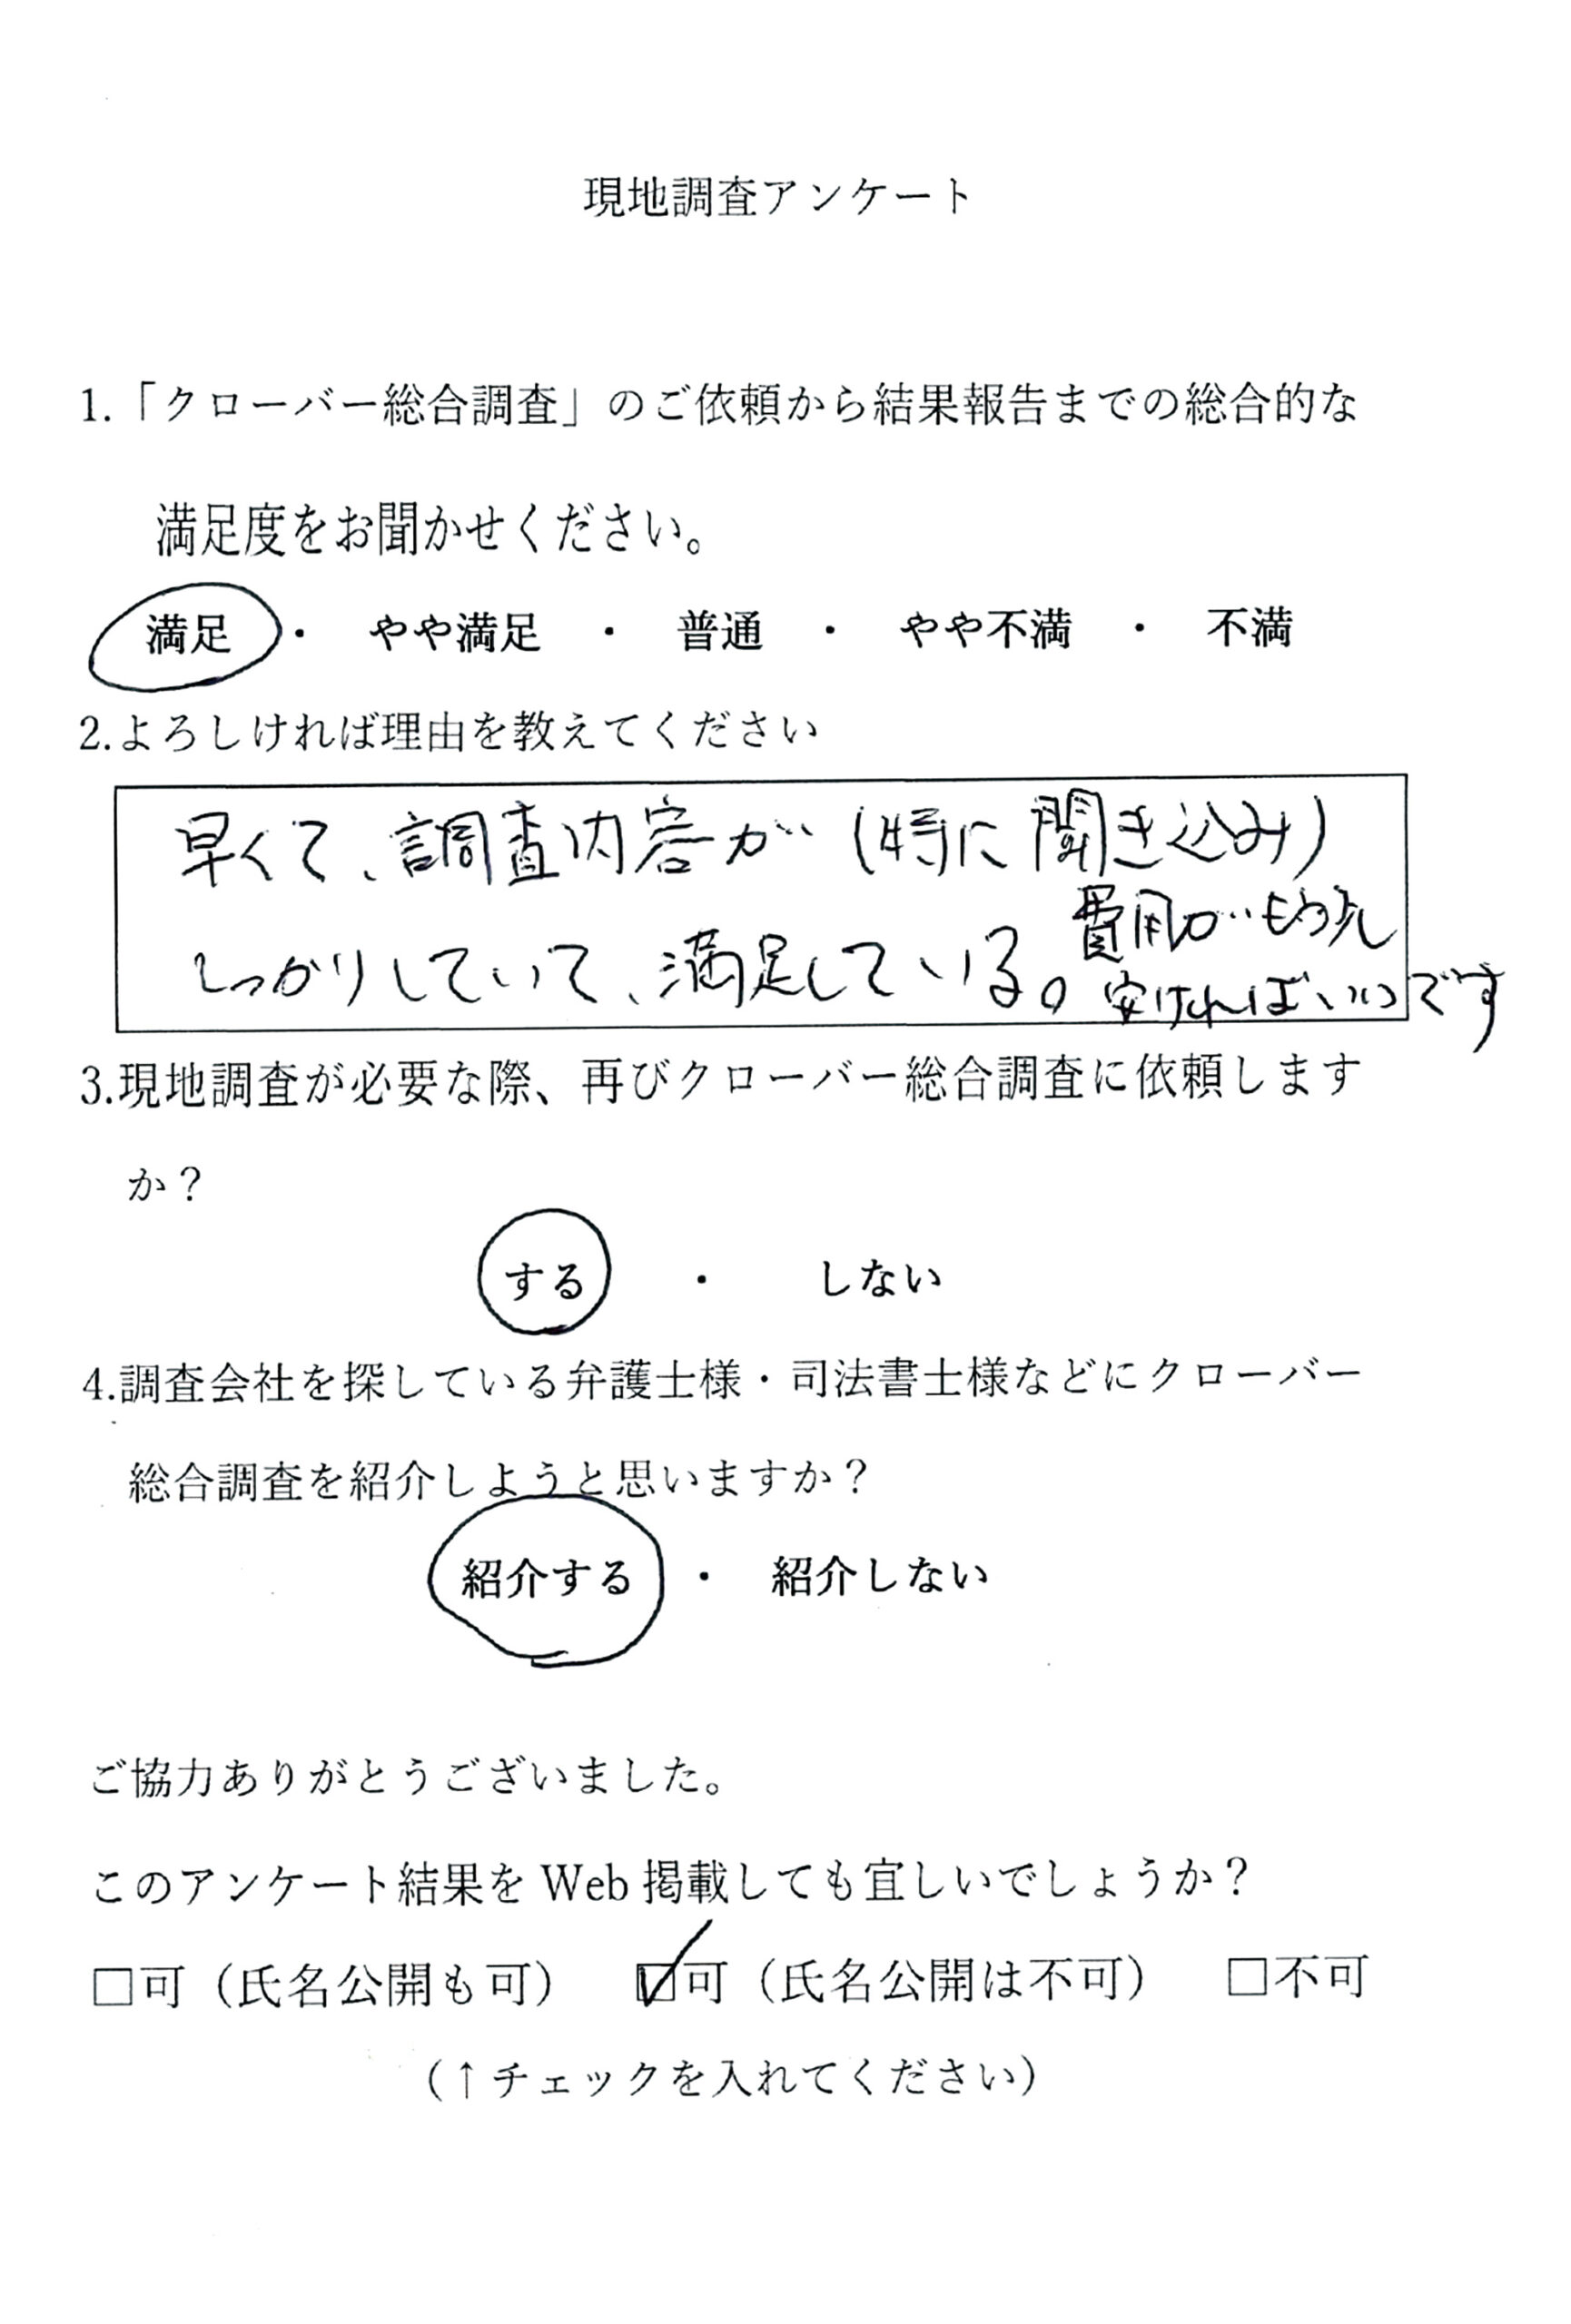 現地調査アンケート
1.「クローバー総合調査」のご依頼から結果報告までの総合的な
満足度をお聞かせください。
満足 ・ やや満足 ・ 普通 ・ やや不満 ・ 不満
2.よろしければ理由を教えてください
早くて、調査内容が(特に聞き込み)
しっかりしていて、満足している。
費用がもう少し
安ければいいです
3.現地調査が必要な際、再びクローバー総合調査に依頼します
か？
する ・ しない
4.調査会社を探している弁護士様・司法書士様などにクローバー
総合調査を紹介しようと思いますか？
紹介する ・ 紹介しない
ご協力ありがとうございました。
このアンケート結果を Web 掲載しても宜しいでしょうか？
□可（氏名公開も可） ☑可（氏名公開は不可） □不可
（↑チェックを入れてください）